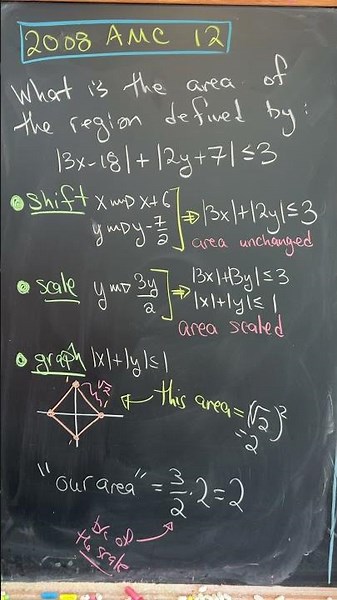 2008 AMC 12
What is the area of
the region defined by:
|3x-18| + |2y+7| ≤ 3
• shift x ↦ x+6
y ↦ y-7/2
⇒ |3x|+|2y| ≤ 3
area unchanged
• scale y ↦ 3y/2
⇒ |3x|+|3y| ≤ 3
|x|+|y| ≤ 1
area scaled
• graph |x|+|y| ≤ 1
√2
← this area = (√2)²
= 2
"our area" = 3/2 · 2 = 2
the scale